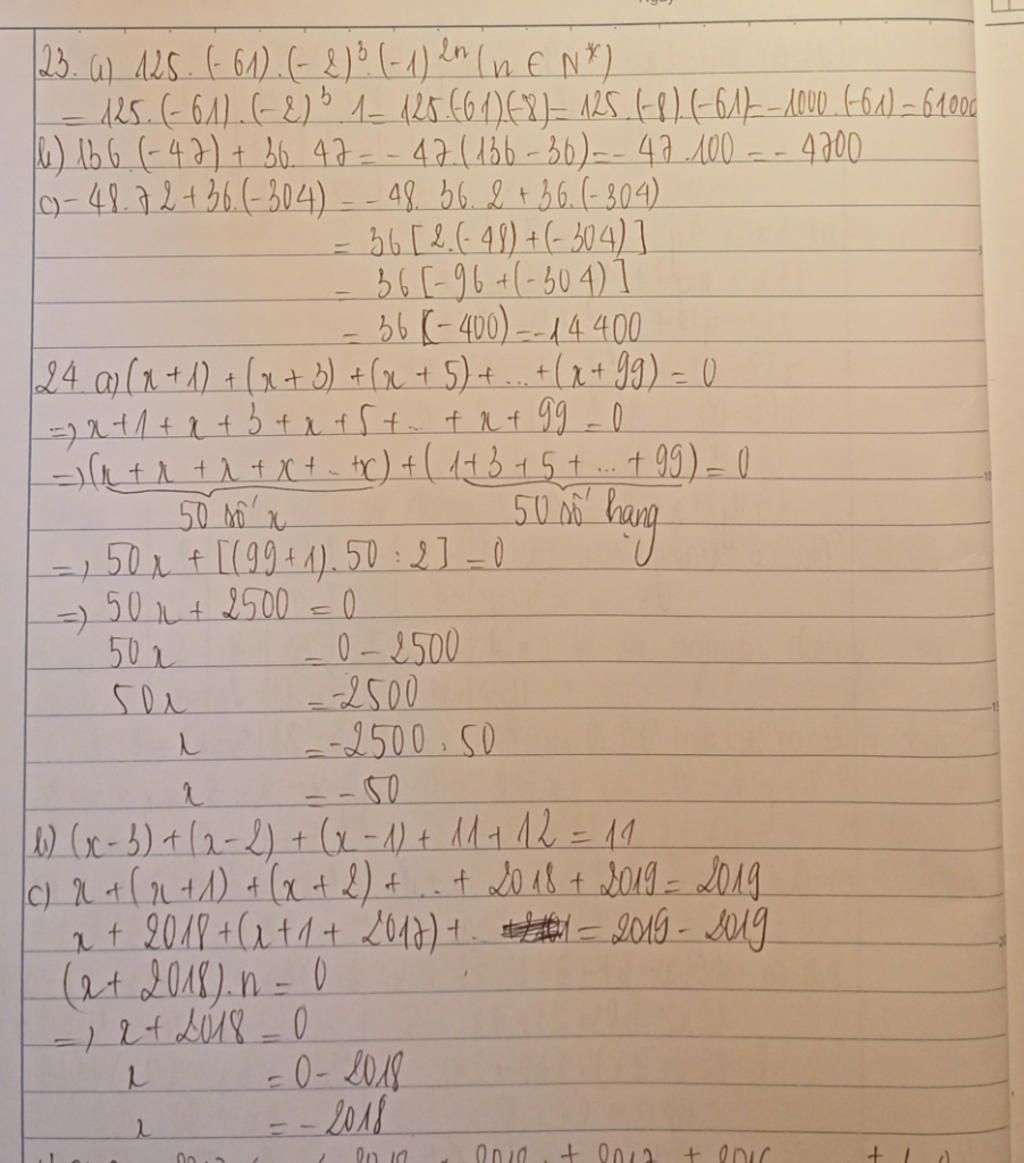 23. a) 125. (-61). (-2)³. (-1)²ⁿ (n ∈ N*)
= 125. (-61). (-2)³. 1 = 125. (-61) (-8) = 125. (-8) (-61) = -1000. (-61) = 61000
b) 136. (-47) + 36. 47 = - 47. (136 - 36) = - 47. 100 = - 4700
c) - 48. 72 + 36. (-304) = - 48. 36. 2 + 36. (-304)
= 36 [2. (-48) + (-304)]
= 36 [-96 + (-304)]
= 36 (-400) = -14 400
24. a) (x + 1) + (x + 3) + (x + 5) + ... + (x + 99) = 0
=) x + 1 + x + 3 + x + 5 + .. + x + 99 = 0
=) (x + x + x + x + .. + x) + (1 + 3 + 5 + ... + 99) = 0
50 số x 50 số hạng
=) 50x + [(99 + 1). 50 : 2] = 0
=) 50x + 2500 = 0
50x = 0 - 2500
50x = -2500
x = -2500 : 50
x = - 50
b) (x - 3) + (x - 2) + (x - 1) + 11 + 12 = 11
c) x + (x + 1) + (x + 2) + ... + 2018 + 2019 = 2019
x + 2018 + (x + 1 + 2017) + .. = 2019 - 2019
(x + 2018). n = 0
=) x + 2018 = 0
x = 0 - 2018
x = - 2018